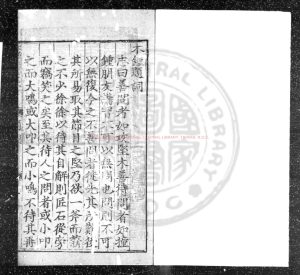 木鐘題詞
志曰善問者如攻堅木善待問者如撞
鐘朋友講習不可以無問也問則不可
以無復今之不善問者徒先其所難後
其所易取其節目之堅乃欲一斧而
之不少徐徐以待其自解則匠石從旁
而竊笑之矣至於待人之問者或小叩
之而大鳴或大叩之而小鳴不待其再